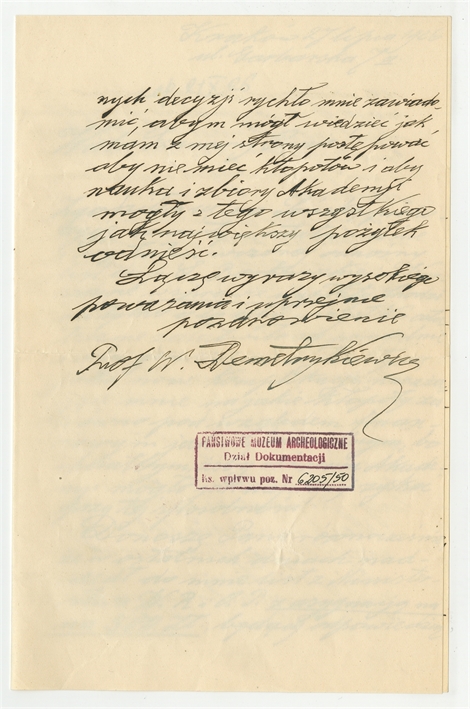 nych decyzji rychło mnie zawiado-
mić, abym mógł wiedzieć jak
mam z mej strony postępować
aby nie mieć kłopotów i aby
nauka i zbiory Akademji
mogły z tego wszystkiego
jak największy pożytek
odnieść.
Łączę wyrazy wysokiego
poważania i uprzejme
pozdrowienie
Prof W. Demetrykiewicz
PAŃSTWOWE MUZEUM ARCHEOLOGICZNE
Dział Dokumentacji
ks. wpływu poz. Nr 6205/50